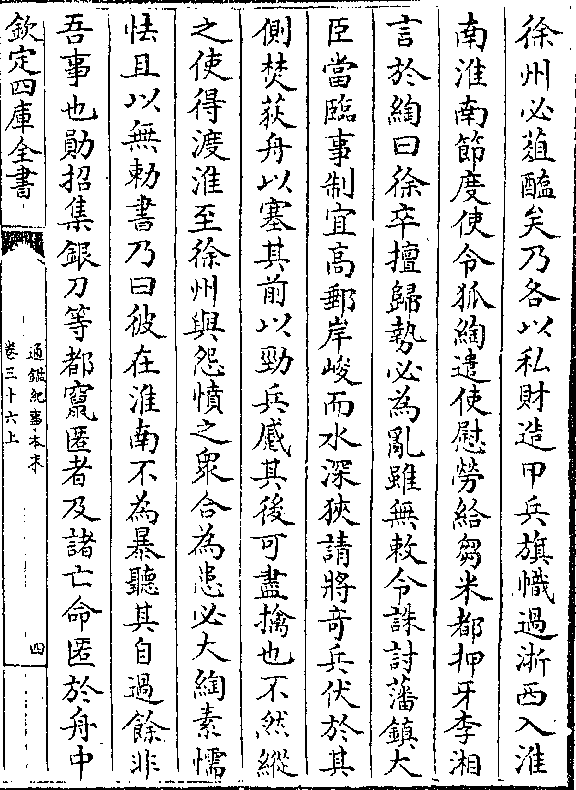 徐州必葅醢矣乃各以私財造甲兵旗幟過浙西入淮
南淮南節度使令狐綯遣使慰勞給芻米都押牙李湘
言於綯曰徐卒擅歸勢必為亂雖無敕令誅討藩鎮大
臣當臨事制宜高郵岸峻而水深狹請將奇兵伏於其
側焚荻舟以塞其前以勁兵蹙其後可盡擒也不然縱
之使得渡淮至徐州與怨憤之衆合為患必大綯素懦
怯且以無勅書乃曰彼在淮南不為暴聽其自過餘非
吾事也勛招集銀刀等都竄匿者及諸亡命匿於舟中
欽定四庫全書
通鑑紀事本末
卷三十六上
四